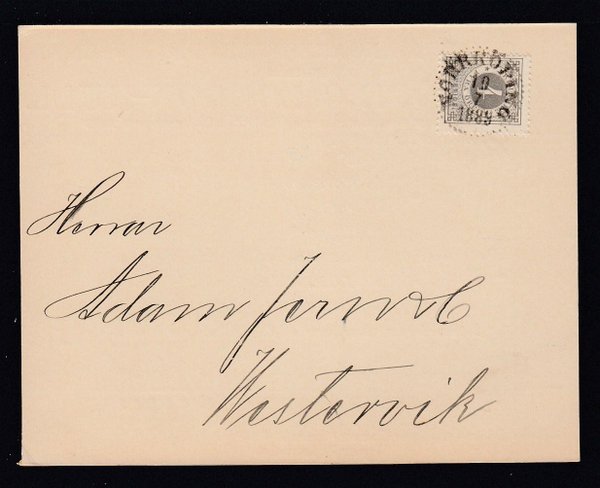 NORRKÖPING
10
7
1889
Herrar
Adam Jern & C
Westervik